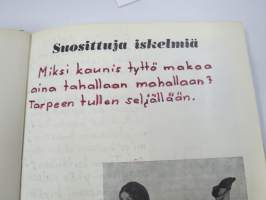 Suosittuja iskelmiä
Miksi kaunis tyttö makaa
aina tahallaan mahallaan?
Tarpeen tullen seljällään.